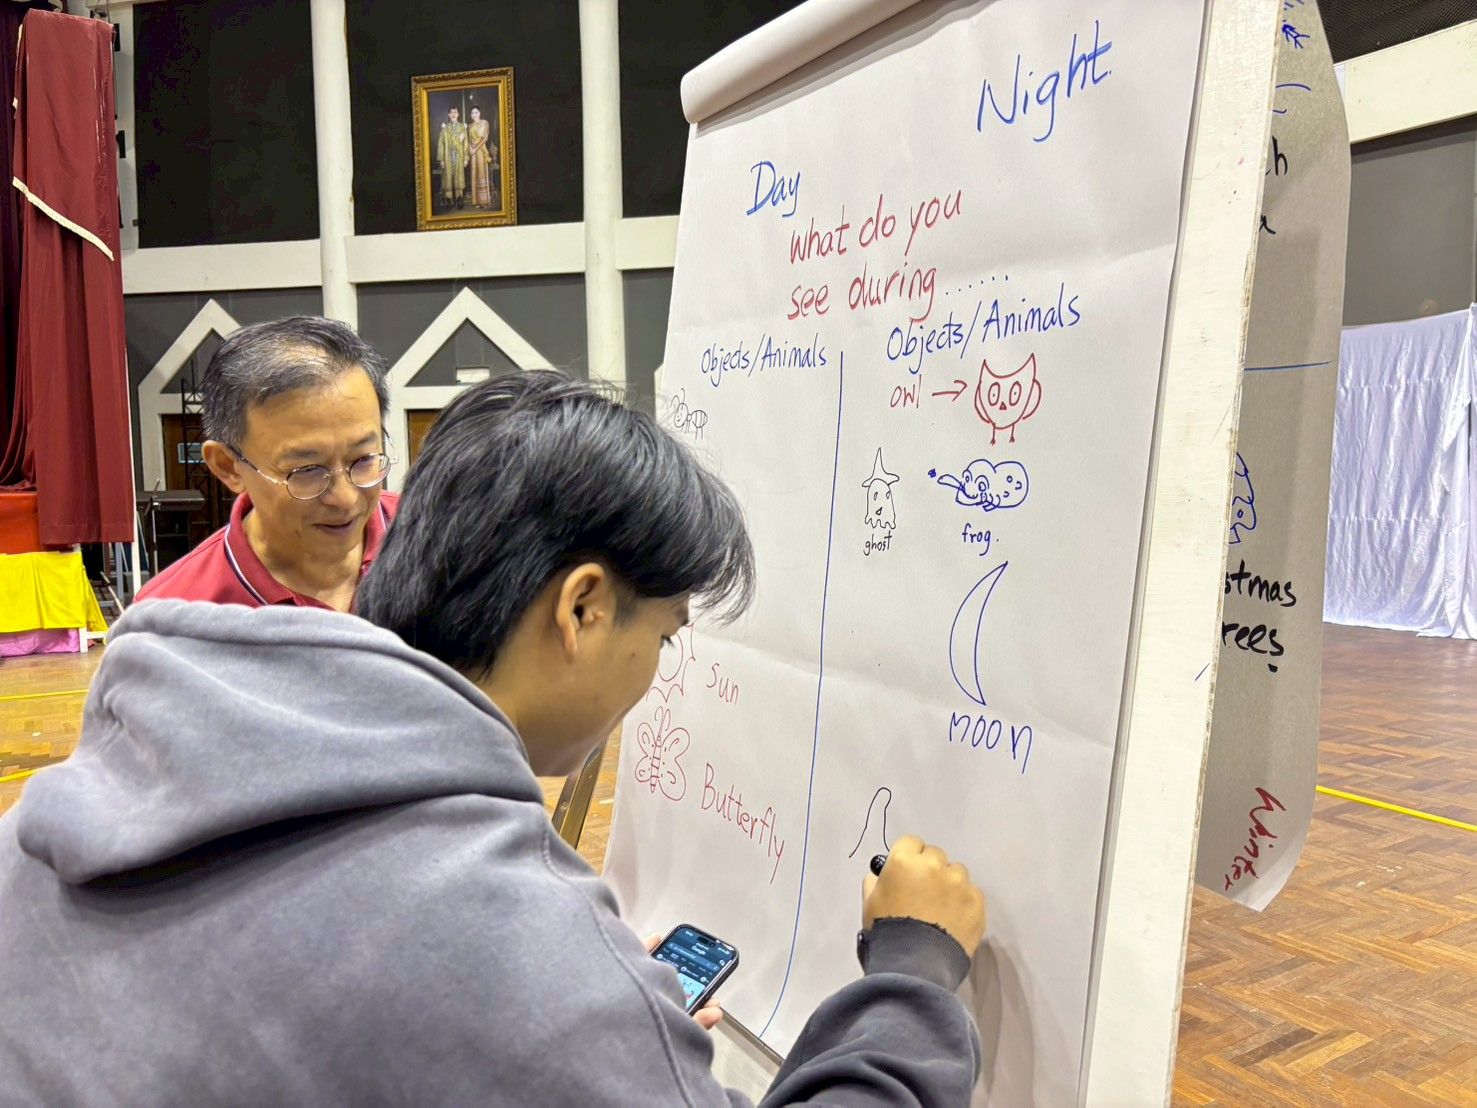 Night
Day
What do you
see during ......
Objects/Animals
Objects/Animals
owl →
ghost
frog.
moon
Sun
Butterfly
stmas
rees
Winter